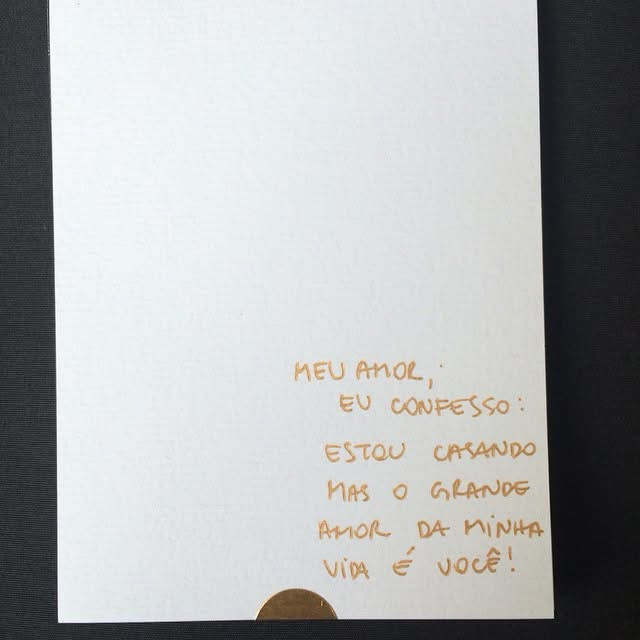 MEU AMOR,
EU CONFESSO:
ESTOU CASANDO
MAS O GRANDE
AMOR DA MINHA
VIDA É VOCÊ!